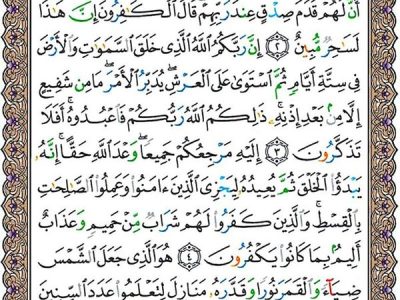 أَنَّ لَهُمْ قَدَمَ صِدْقٍ عِندَ رَبِّهِمْ ۗ قَالَ ٱلْكَٰفِرُونَ إِنَّ هَٰذَا
لَسَٰحِرٌ مُّبِينٌ ٢ إِنَّ رَبَّكُمُ ٱللَّهُ ٱلَّذِى خَلَقَ ٱلسَّمَٰوَٰتِ وَٱلْأَرْضَ
فِى سِتَّةِ أَيَّامٍ ثُمَّ ٱسْتَوَىٰ عَلَى ٱلْعَرْشِ ۖ يُدَبِّرُ ٱلْأَمْرَ ۖ مَا مِن شَفِيعٍ
إِلَّا مِنۢ بَعْدِ إِذْنِهِۦ ۚ ذَٰلِكُمُ ٱللَّهُ رَبُّكُمْ فَٱعْبُدُوهُ ۚ أَفَلَا
تَذَكَّرُونَ ٣ إِلَيْهِ مَرْجِعُكُمْ جَمِيعًا ۖ وَعْدَ ٱللَّهِ حَقًّا ۚ إِنَّهُۥ
يَبْدَؤُا۟ ٱلْخَلْقَ ثُمَّ يُعِيدُهُۥ لِيَجْزِىَ ٱلَّذِينَ ءَامَنُوا۟ وَعَمِلُوا۟ ٱلصَّٰلِحَٰتِ
بِٱلْقِسْطِ ۚ وَٱلَّذِينَ كَفَرُوا۟ لَهُمْ شَرَابٌ مِّنْ حَمِيمٍ وَعَذَابٌ
أَلِيمٌۢ بِمَا كَانُوا۟ يَكْفُرُونَ ٤ هُوَ ٱلَّذِى جَعَلَ ٱلشَّمْسَ
ضِيَآءً وَٱلْقَمَرَ نُورًا وَقَدَّرَهُۥ مَنَازِلَ لِتَعْلَمُوا۟ عَدَدَ ٱلسِّنِينَ